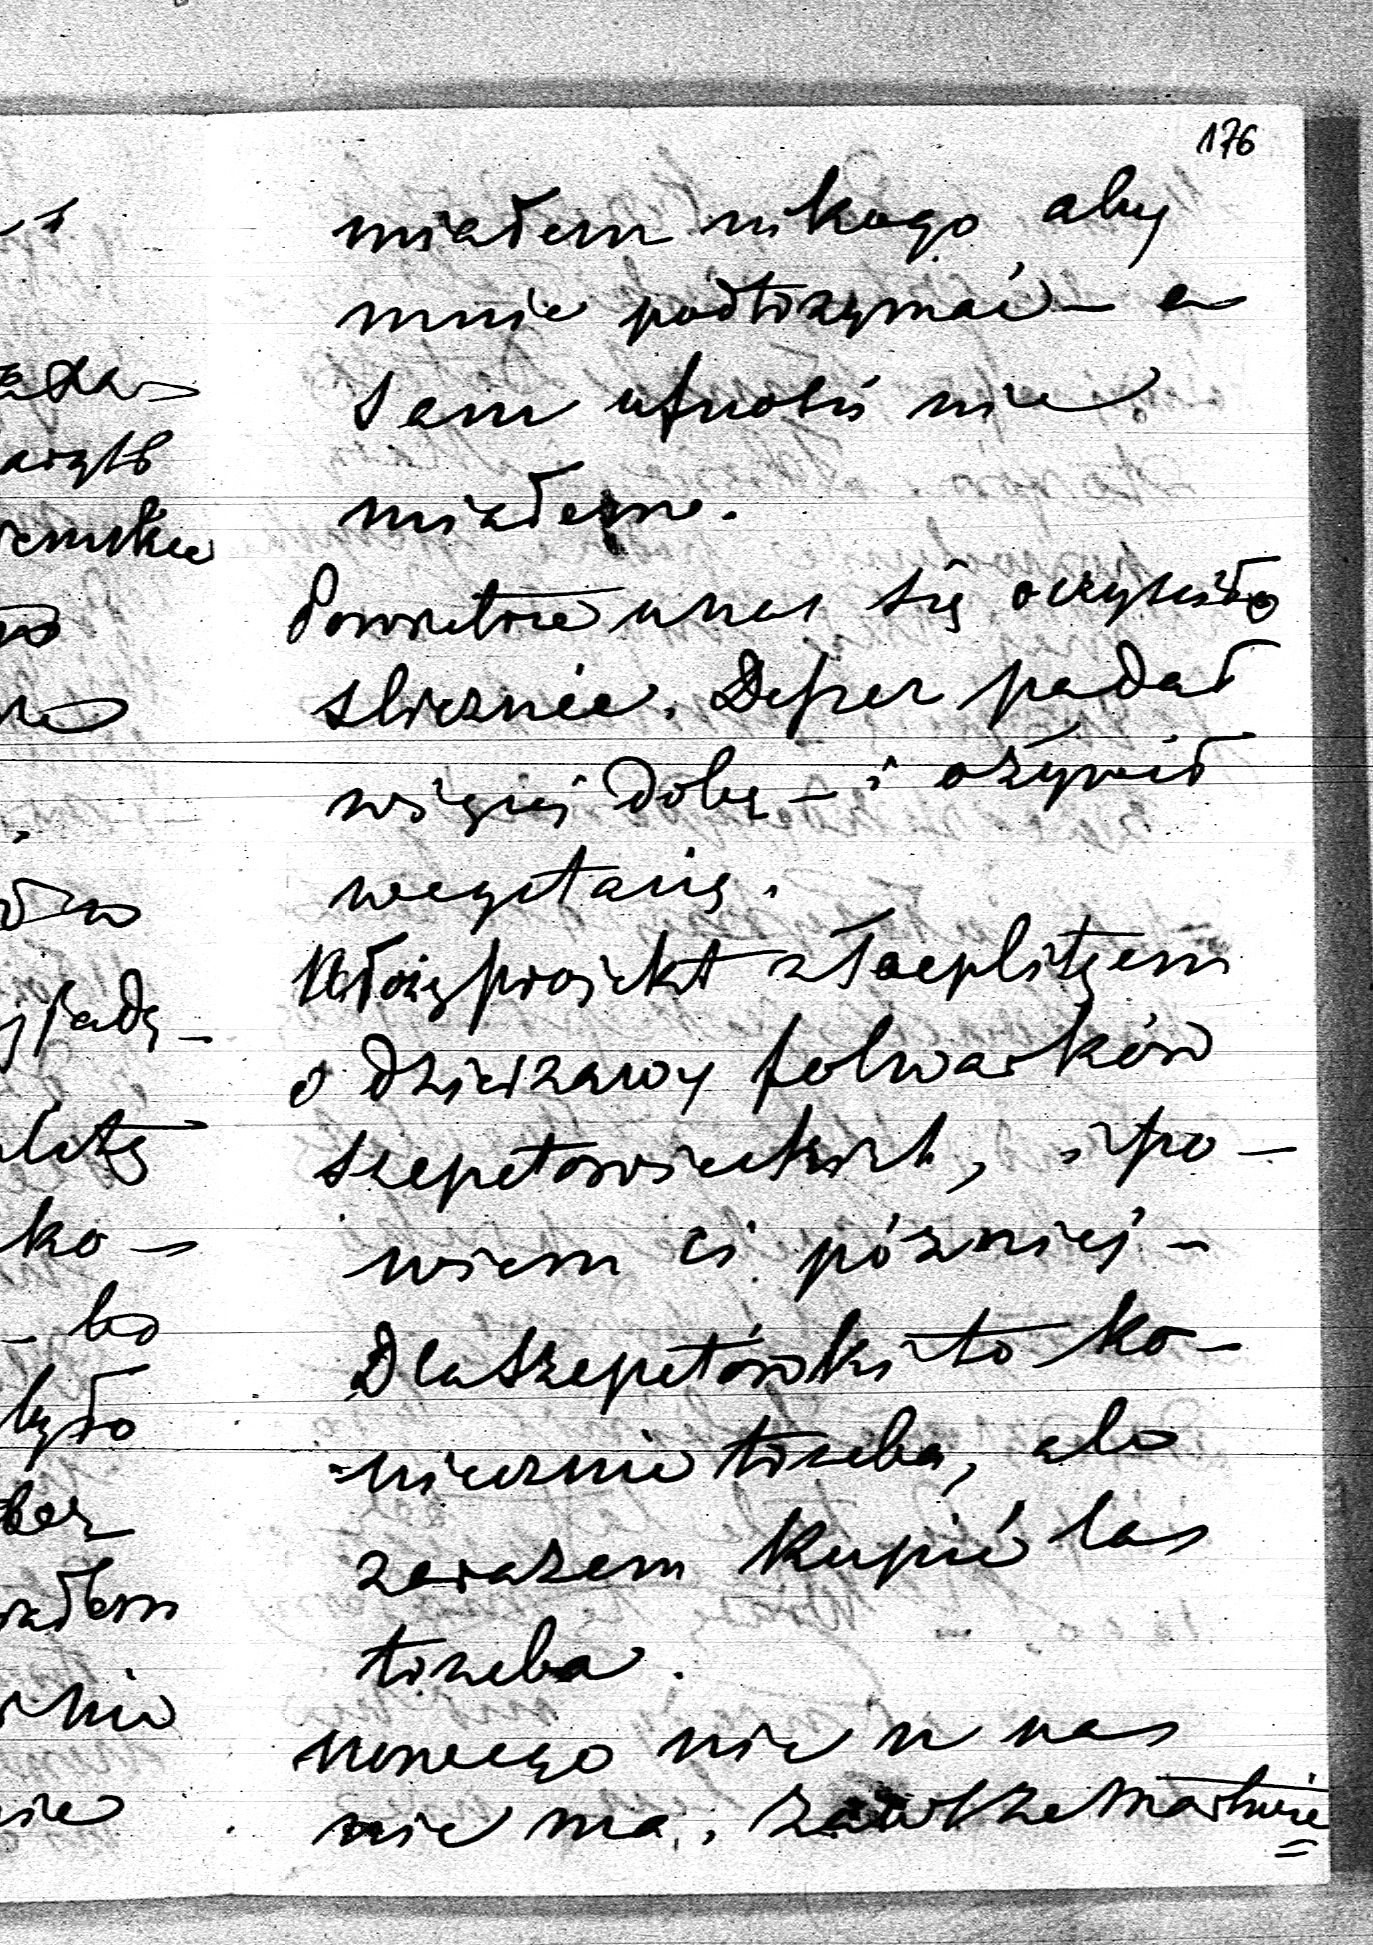 176
miałem nikogo aby
mnie podtrzymać – a
sam ufności nie
miałem.
Powietrze u nas się oczyściło
ślicznie. Deszcz padał
więcej dobę – i ożywił
wegetacię.
Włożę projekt z Toeplitzem
o dzierżawy folwarków
szepetowieckich, i po–
wiem ci później –
Dla Szepetówki to ko–
niecznie trzeba, ale
zarazem kupić las
trzeba.
Nowego nic u nas
nie ma, zawsze martwie
ada–
bo
było
ko–
nie